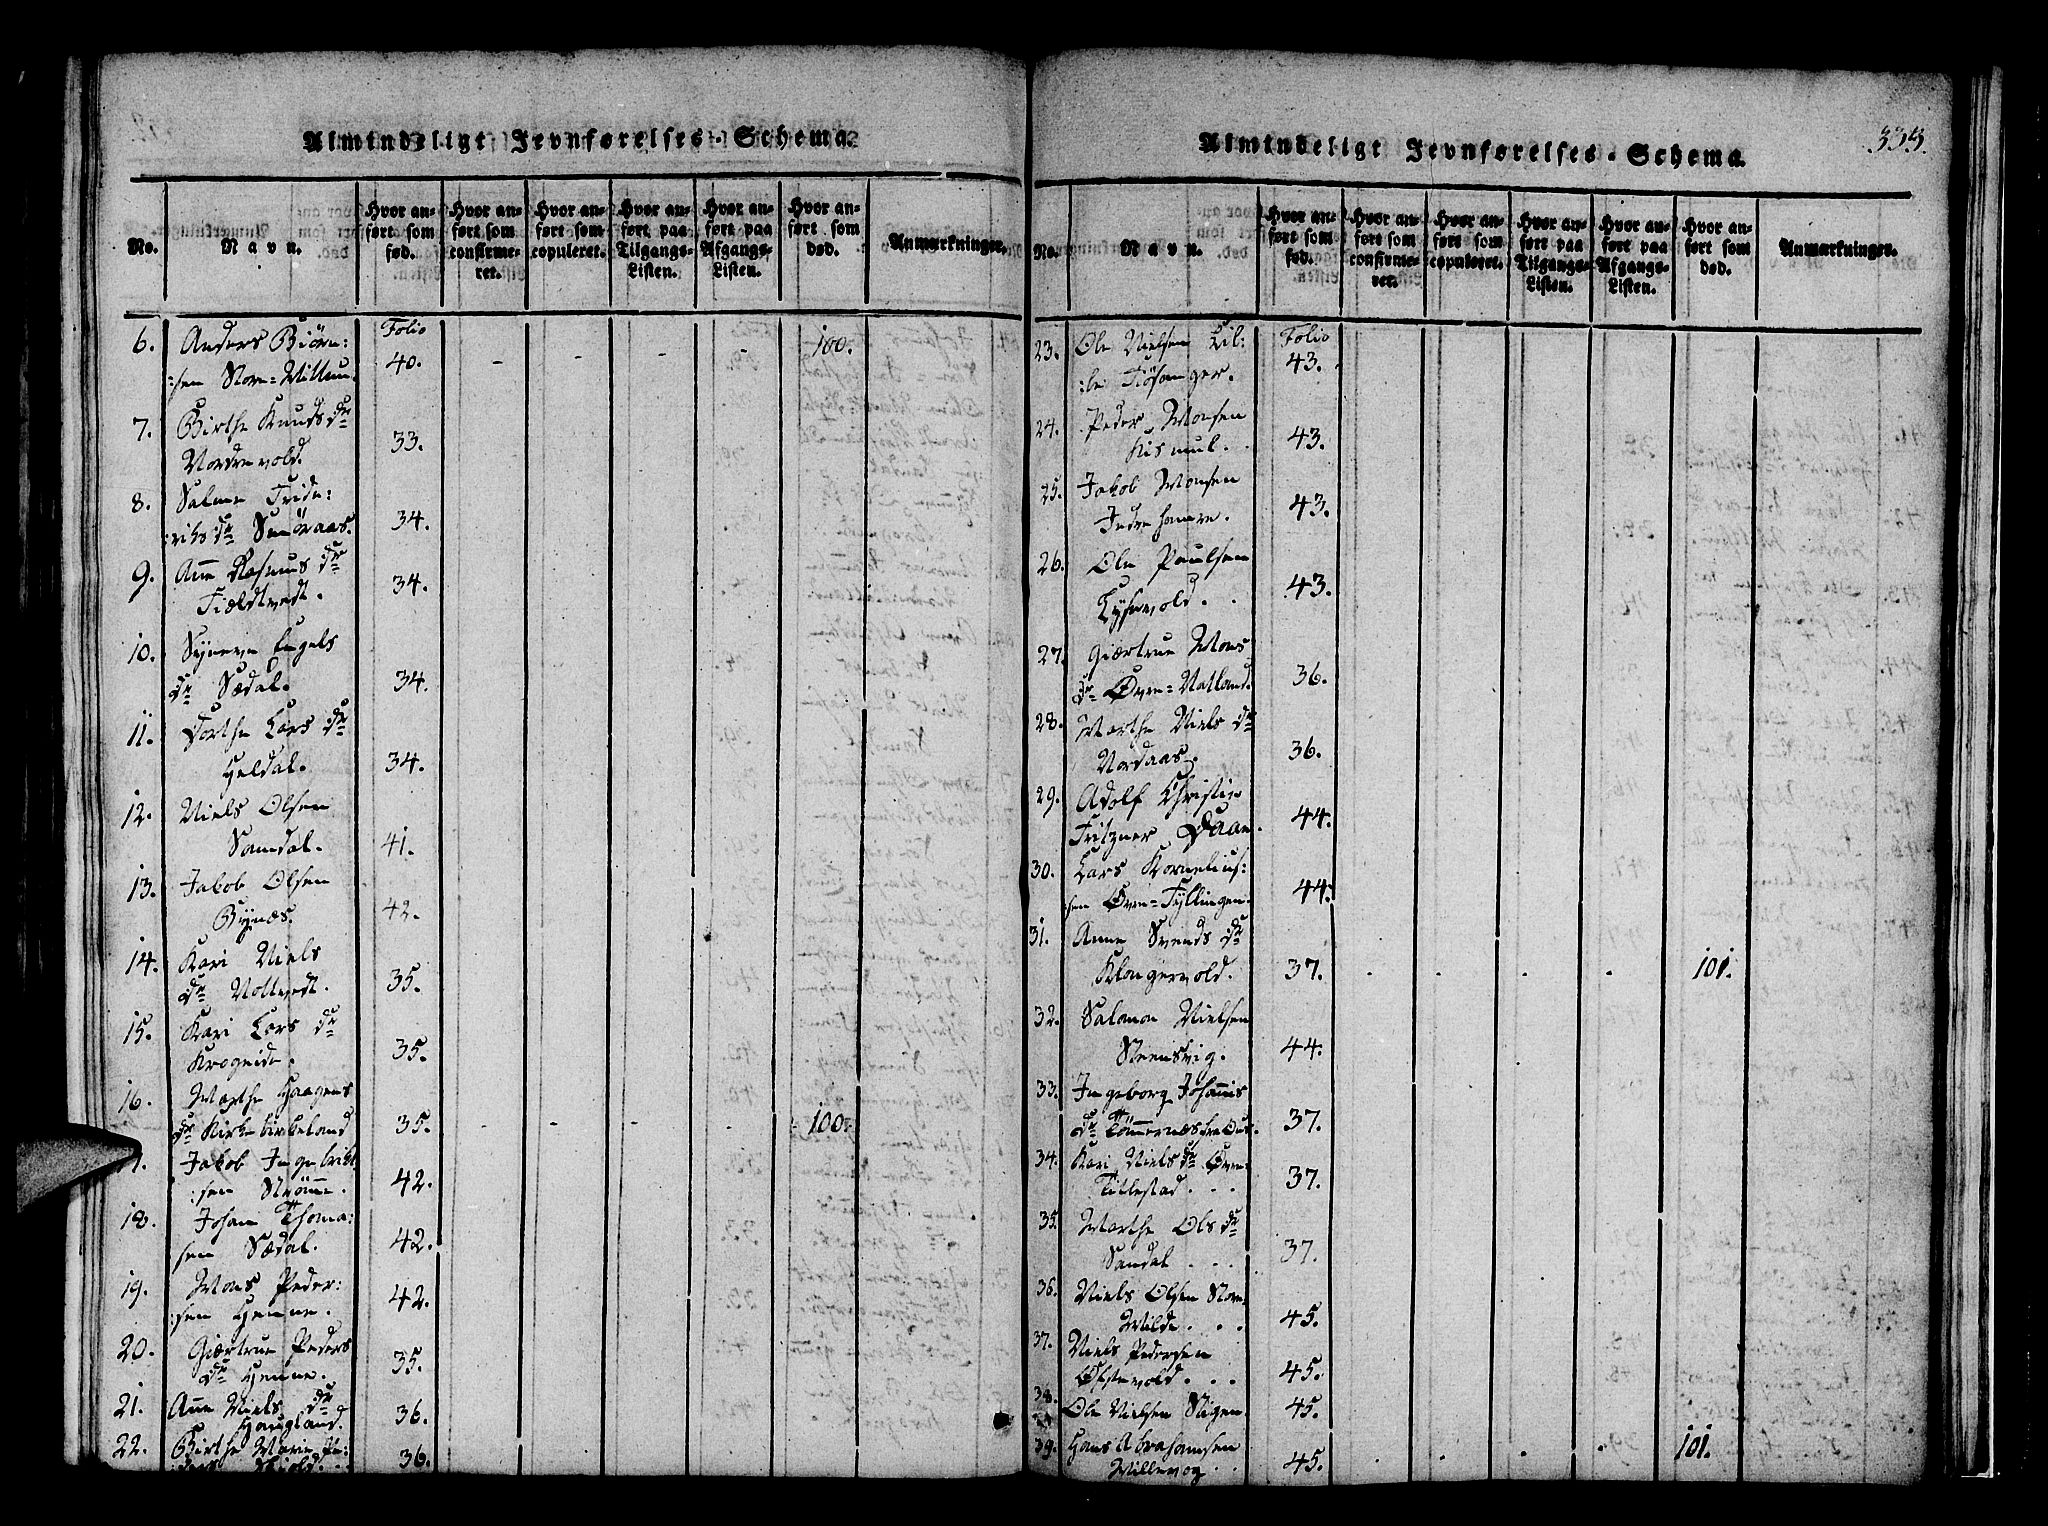 Almindeligt Jevnførelses-Schema.
No.
Navn.
Hvor anført som fød.
Hvor anført som confirmeret.
Hvor anført som copuleret.
Hvor anført paa Tilgangs-Listen.
Hvor anført paa Afgangs-Listen.
Hvor anført som død.
Anmærkninger.
Folio
6. Anders Biørn:
:sen 40. - - - - 100.
7. Birthe Knuds dr
Nordrevold. 33.
8. Salme Fride:
:riks dr Smöraas. 34.
9. Ane Rasmus dr
Tieldtvedt. 34.
10. Synneve Engels
dr Sædal. 34.
11. Dorthe Lars dr
Heldal. 34.
12. Niels Olsen
Samdal. 41.
13. Jakob Olsen
Bynæs. 42.
14. Kari Niels
dr 35.
15. Kari Lars dr
Krogeide. 35.
16. Marthe Haagens
dr Kirkebirkeland 35. - - - - 100.
17. Jakob Ingebrikt
:sen Strömme. 42.
18. Johan Thoma:
sen Sædal. 42.
19. Mons Peder:
:sen Henne. 42.
20. Giærtrue Peders
dr Henne. 35.
21. Ane Niels dr
Haugland. 36.
22. Birthe Marie Pe:
36.
Almindeligt Jevnførelses-Schema.
333.
No.
Navn.
Hvor anført som fød.
Hvor anført som confirmeret.
Hvor anført som copuleret.
Hvor anført paa Tilgangs-Listen.
Hvor anført paa Afgangs-Listen.
Hvor anført som død.
Anmærkninger.
Folio
23. Ole Nielsen Lil:
:le Tiösanger. 43.
24. Peder Monsen
Kismul. 43.
25. Jakob Monsen
Indrehamre. 43.
26. Ole Paulsen
Lysevold. 43.
27. Giærtrue Mons
dr Øvre=Natland. 36.
28. Marthe Niels dr
Nordaas. 36.
29. Adolf Christia
Fritzner Daae. 44.
30. Lars Kornelius:
:sen Øvre=Fyllingen. 44.
31. Anne Svends dr
Klongervold. 37. - - - - 101.
32. Salamon Nielsen
Steensvig. 44.
33. Ingeborg Johannis
dr 37.
34. Kari Niels dr Øvre
Titlestad. 37.
35. Marthe Ols dr
Sandal 37.
36. Niels Olsen Store
Milde 45.
37. Niels Pedersen
Østevold. 45.
38. Ole Nielsen Stigen 45.
39. Hans Abrahamsen
Millevog 45. - - - - 101.